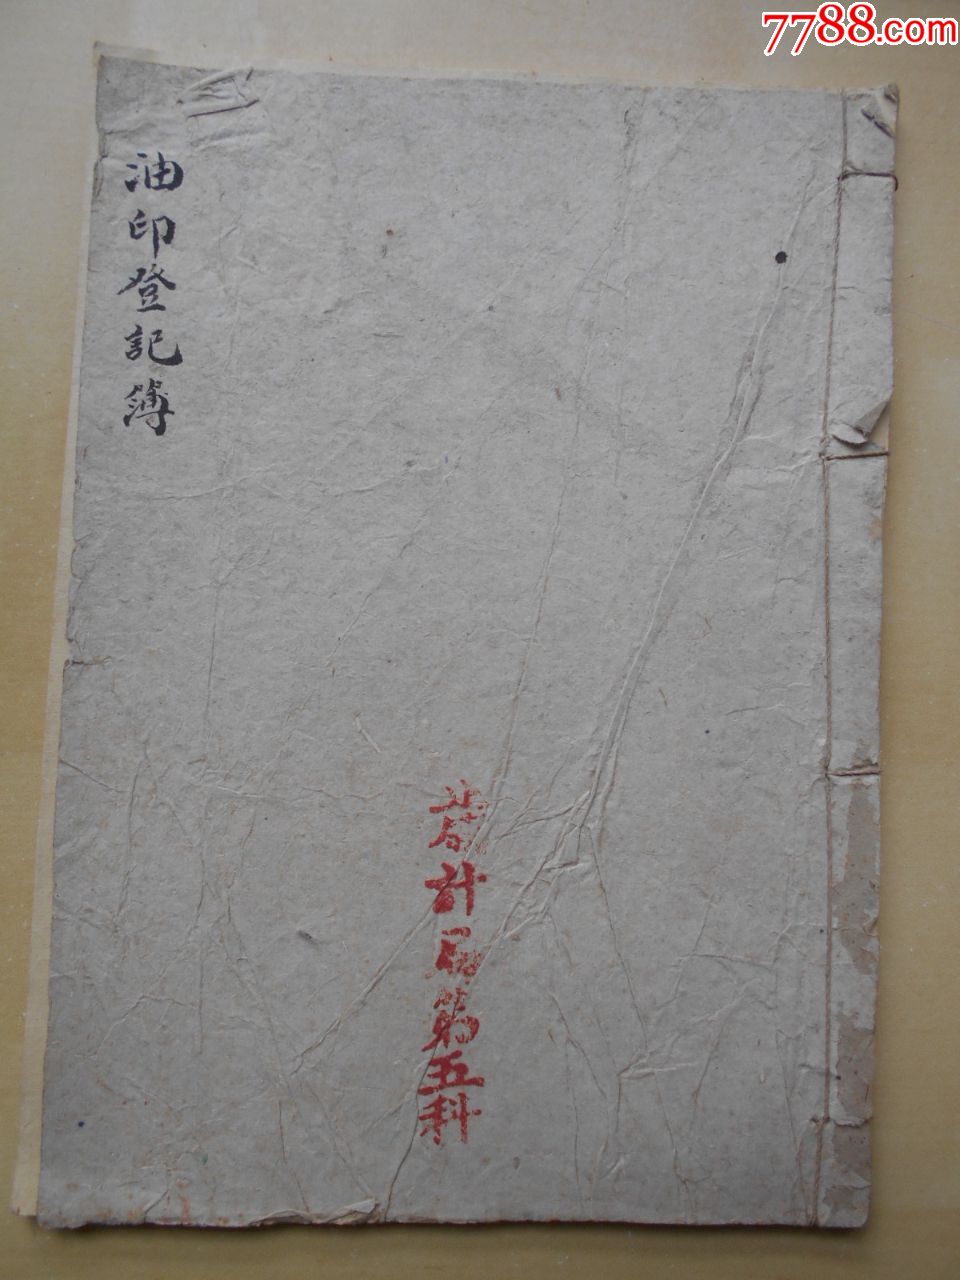 7788.com
油印登記簿
歲計局第五科